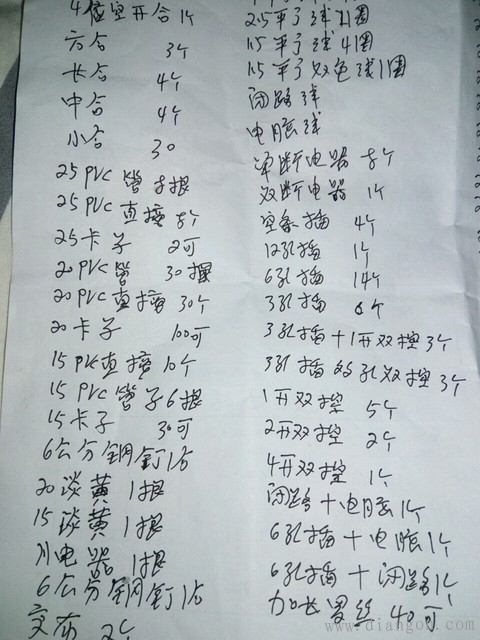 4位空开合1个
六合 3个
长合 4个
中合 4个
小合 30
25PVC管8根
25PVC直接8个
25卡子 2可
20PVC管 30根
20PVC直接30个
20卡子 100可
15PVC直接10个
15PVC管子6根
15卡子 30可
6公分钢钉1合
20谈黄 1根
15谈黄 1根
川电器 1根
6公分钢钉1合
交布 2个
2.5平方线 1圈
1.5平方线4圈
1.5平方双色线1圈
闭路线
电脑线
单断电器 8个
双断电器 1个
空气插 4个
12孔插 1个
6孔插 14个
3孔插 6个
3孔插+1开双控3个
3孔插 孔双控3个
1开双控 5个
2开双控 2个
4开双控 1个
闭路+电脑1个
6孔插+电脑1个
6孔插+闭路1个
加长罗丝 40可
www.diangon.com